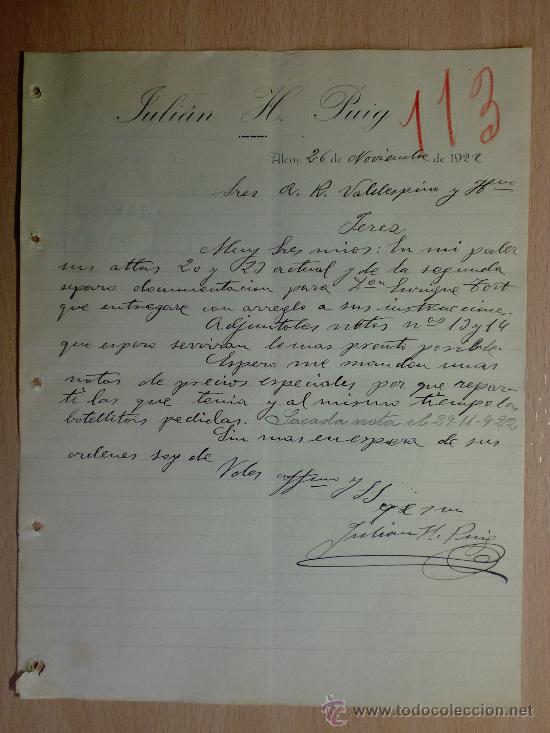 Julián H. Puig
113
Alcoy 26 de Noviembre de 1922
Sres A. R. Valdespino y Hno
Jerez
Muy Sres mios: En mi poder
sus attas 20 y 23 actual y de la segunda
separo documentacion para Don Enrique Tort
que entregare con arreglo a sus instruccione.
Adjuntoles notas nos 13 y 14
que espero serviran lo mas pronto posible.
Espero me manden unas
notas de precios especiales por que repar-
ti las que tenia y al mismo tiempo las
botellitas pedidas. Sacada nota el 29-11-922
Sin mas en espera de sus
ordenes soy de
Vdes affmo y SS
q e s m
Julian H. Puig
www.todocoleccion.net